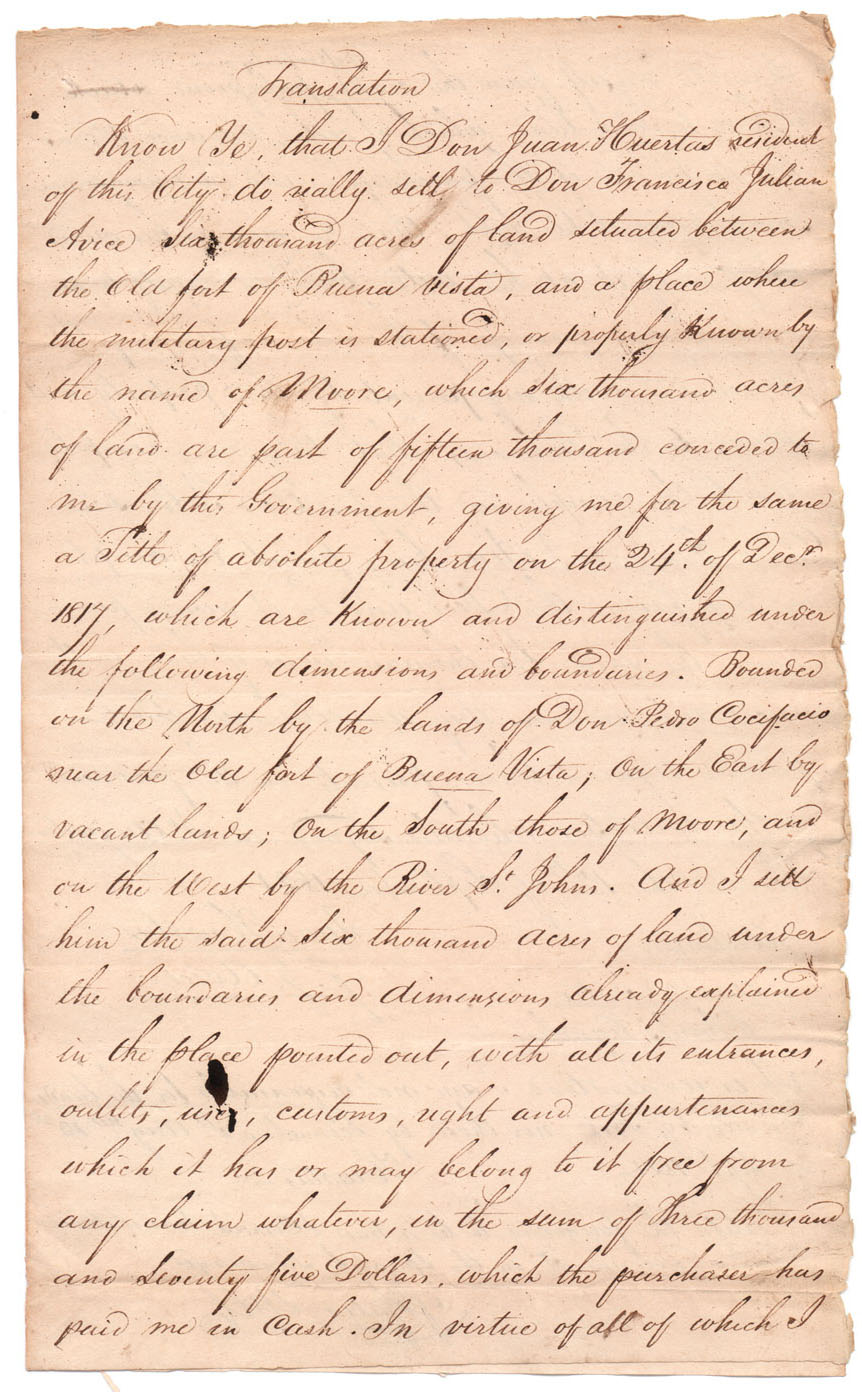 Translation
Know Ye, that I Don Juan Huertas resident
of this City do really sell to Don Francisco Julian
Avice Six thousand acres of land situated between
the Old fort of Buena Vista, and a place where
the military post is stationed, or properly Known by
the name of Moore, which Six thousand acres
of land are part of fifteen thousand conceded to
me by this Government, giving me for the same
a Title of absolute property on the 24th. of Decr.
1817, which are Known and distinguished under
the following dimensions and boundaries. Bounded
on the North by the lands of Don Pedro Cocifacio
near the Old fort of Buena Vista; On the East by
vacant lands; On the South those of Moore, and
on the West by the River St. Johns. And I sell
him the said Six thousand acres of land under
the boundaries and dimensions already explained
in the place pointed out, with all its entrances,
outlets, uses, customs, right and appurtenances
which it has or may belong to it free from
any claim whatever, in the sum of Three thousand
and Seventy five Dollars. which the purchaser has
paid me in Cash. In virtue of all of which I